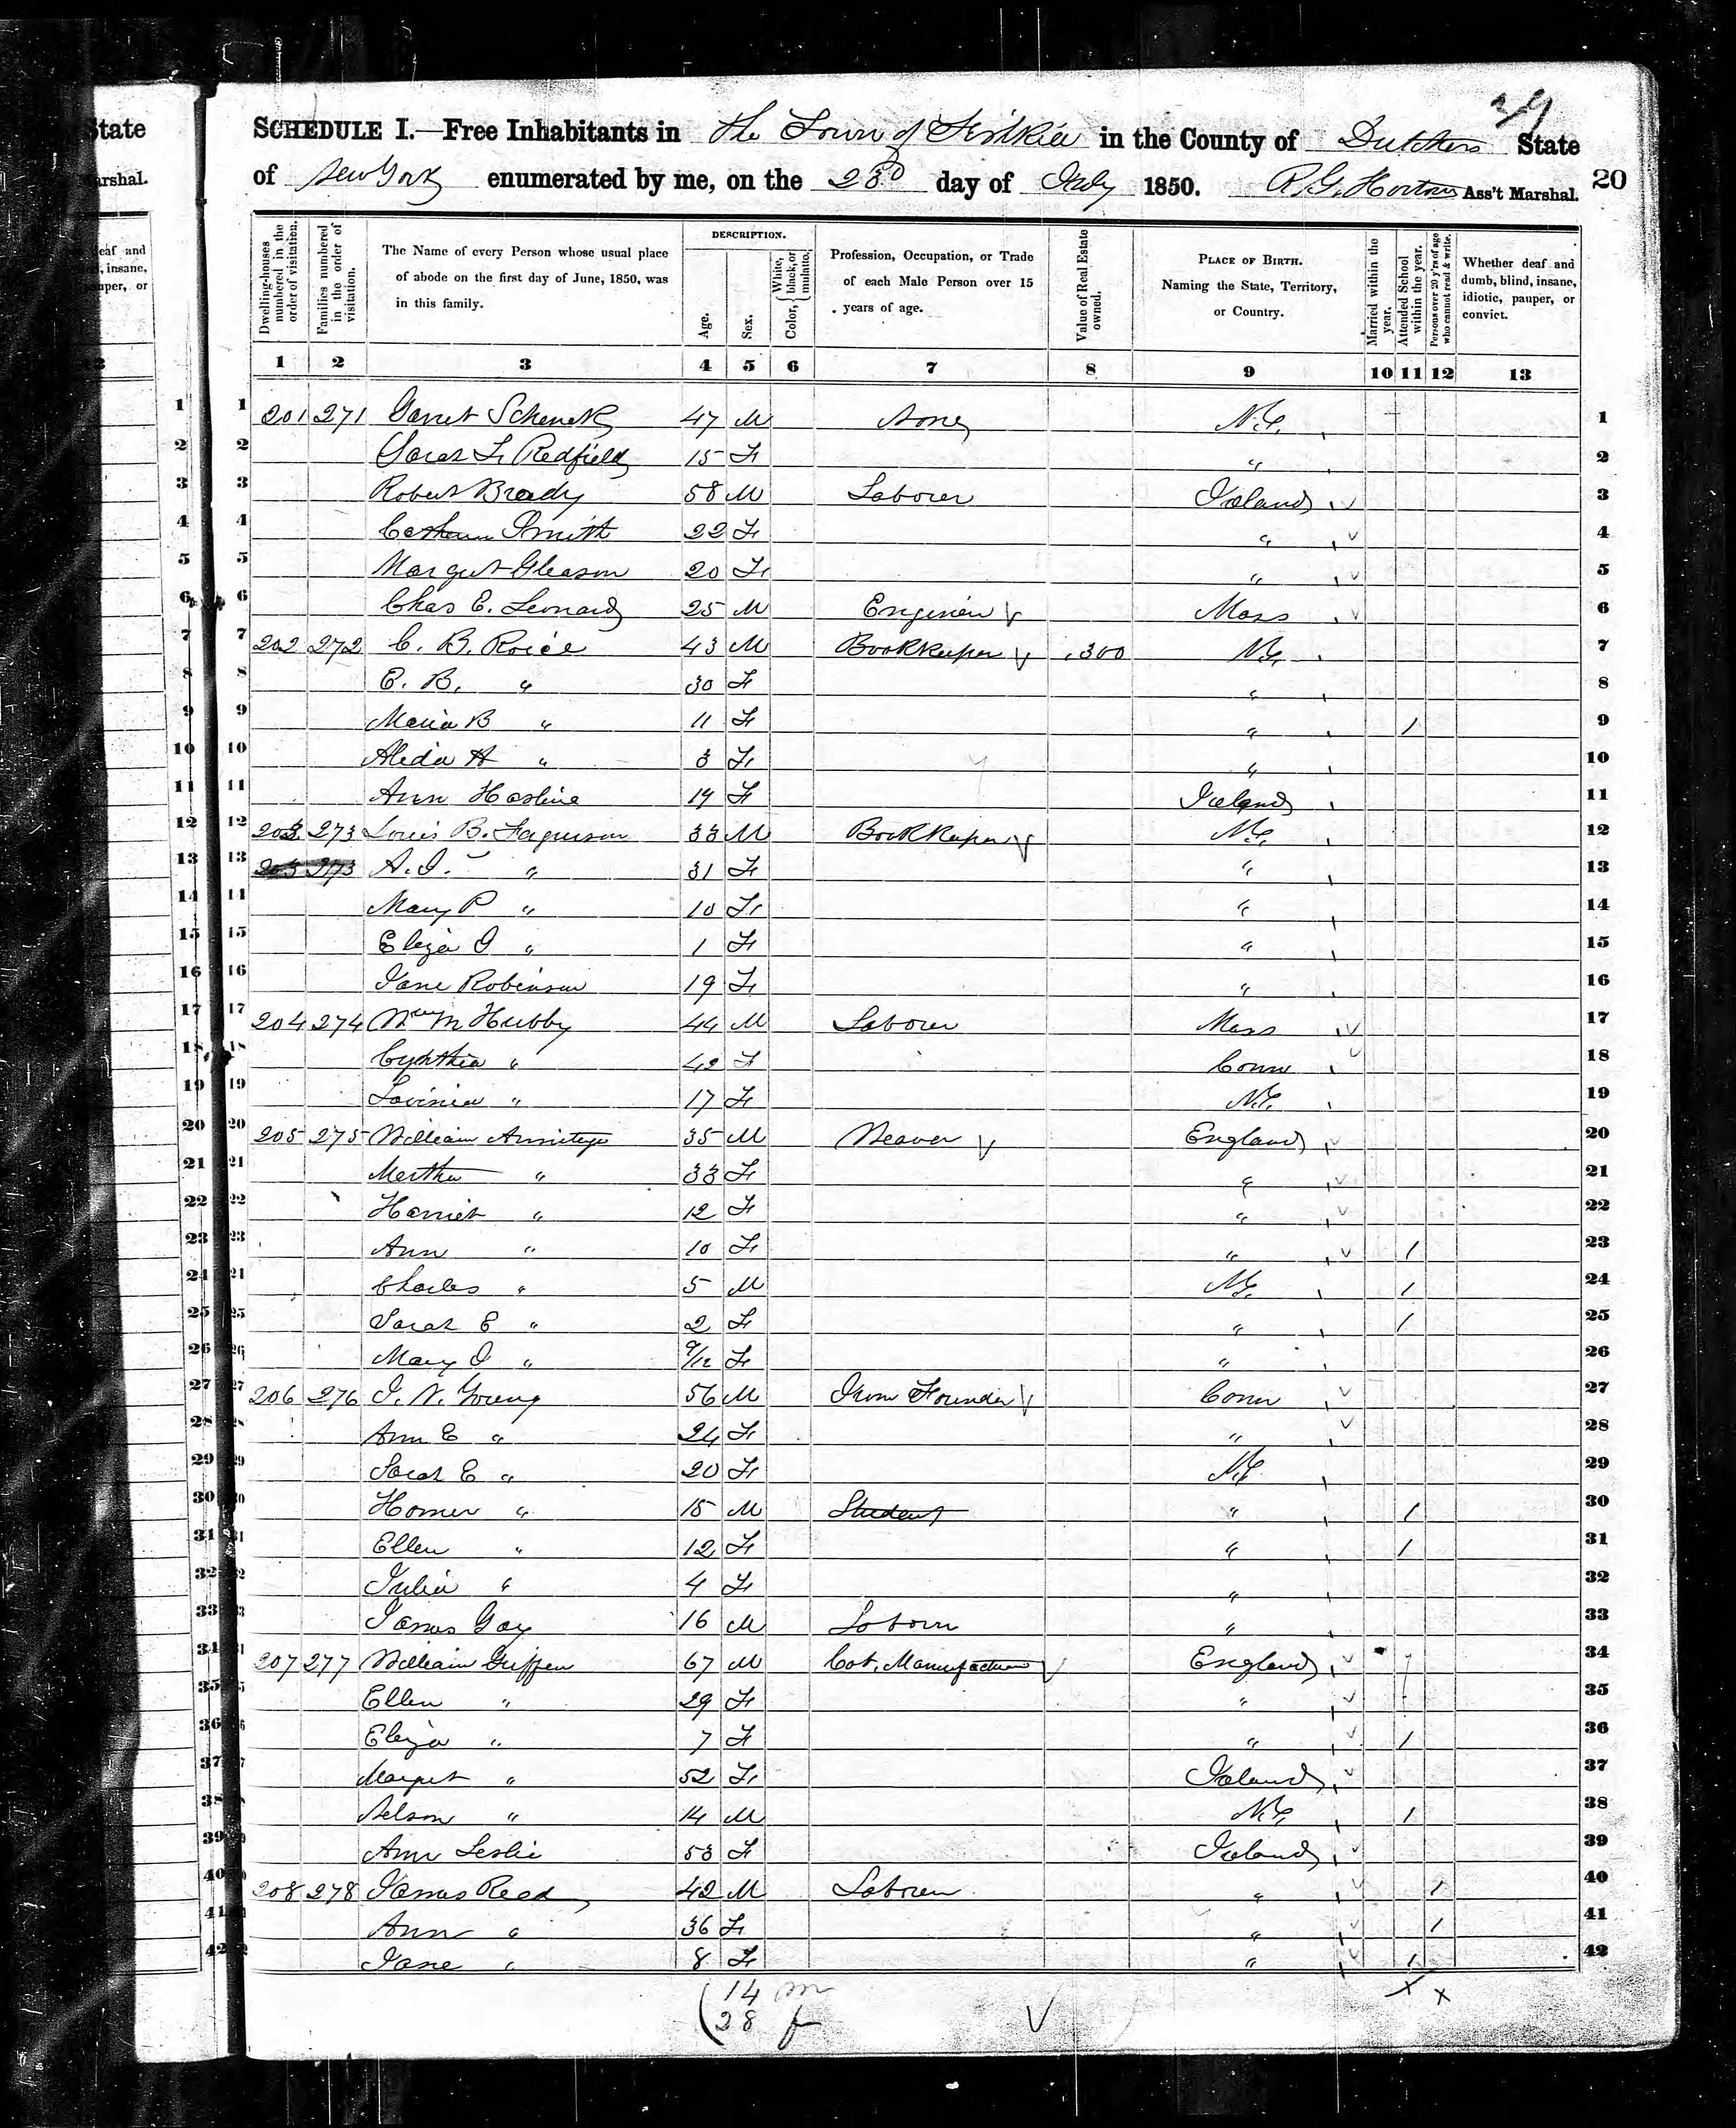 34
SCHEDULE I.—Free Inhabitants in the Town of Fishkill in the County of Dutchess State
of New York enumerated by me, on the 23d day of July 1850. R. G. Horton Ass't Marshal. 20
State
Marshal.
Dwelling-houses numbered in the order of visitation.
Families numbered in the order of visitation.
The Name of every Person whose usual place of abode on the first day of June, 1850, was in this family.
DESCRIPTION.
Age.
Sex.
Color, { White, black, or mulatto.
Profession, Occupation, or Trade of each Male Person over 15 years of age.
Value of Real Estate owned.
PLACE OF BIRTH. Naming the State, Territory, or Country.
Married within the year.
Attended School within the year.
Persons over 20 y'rs of age who cannot read & write.
Whether deaf and dumb, blind, insane, idiotic, pauper, or convict.
1 2 3 4 5 6 7 8 9 10 11 12 13
1 201 271 Garret Schenck 47 M None N.Y. 1
2 Sarah L. Redfield 15 F " 2
3 Robert Brady 58 M Laborer Ireland 3
4 Smith 22 F " 4
5 Margret Gleason 20 F " 5
6 Chas E. Leonard 25 M Engineer Mass 6
7 202 272 C. B. 43 M Bookkeeper 300 N.Y. 7
8 E. B. " 30 F " 8
9 Maria B " 11 F " 1 9
10 Aleda H " 3 F " 10
11 Ann 19 F Ireland 11
12 203 273 Louis B. Ferguson 33 M Bookkeeper N.Y. 12
13 203 273 A. J. " 31 F " 13
14 Mary P " 10 F " 14
15 Eliza J " 1 F " 15
16 Jane Robinson 19 F " 16
17 204 274 Wm M Hubby 44 M Laborer Mass 17
18 Cynthia " 42 F Conn 18
19 Lovinia " 17 F N.Y. 19
20 205 275 William Armitage 35 M Weaver England 20
21 Martha " 33 F " 21
22 Harriet " 12 F " 22
23 Ann " 10 F " 1 23
24 Charles " 5 M N.Y. 1 24
25 Sarah E " 2 F " 1 25
26 Mary J " 9/12 F " 26
27 206 276 J. N. Young 56 M Iron Founder Conn 27
28 Ann E " 24 F " 28
29 Sarah E " 20 F N.Y. 29
30 Homer " 15 M Student " 1 30
31 Ellen " 12 F " 1 31
32 Julia " 4 F " 32
33 James Gay 16 M Laborer " 33
34 207 277 William Griffen 67 M Cot. Manufacturer England 34
35 Ellen " 29 F " 35
36 Eliza " 7 F " 1 36
37 Margret " 52 F Ireland 37
38 Nelson " 14 M N.Y. 1 38
39 Ann Leslie 53 F Ireland 39
40 208 278 James Reed 42 M Laborer " 1 40
41 Ann " 36 F " 1 41
42 Jane " 8 F " 1 42
14 m
28 f